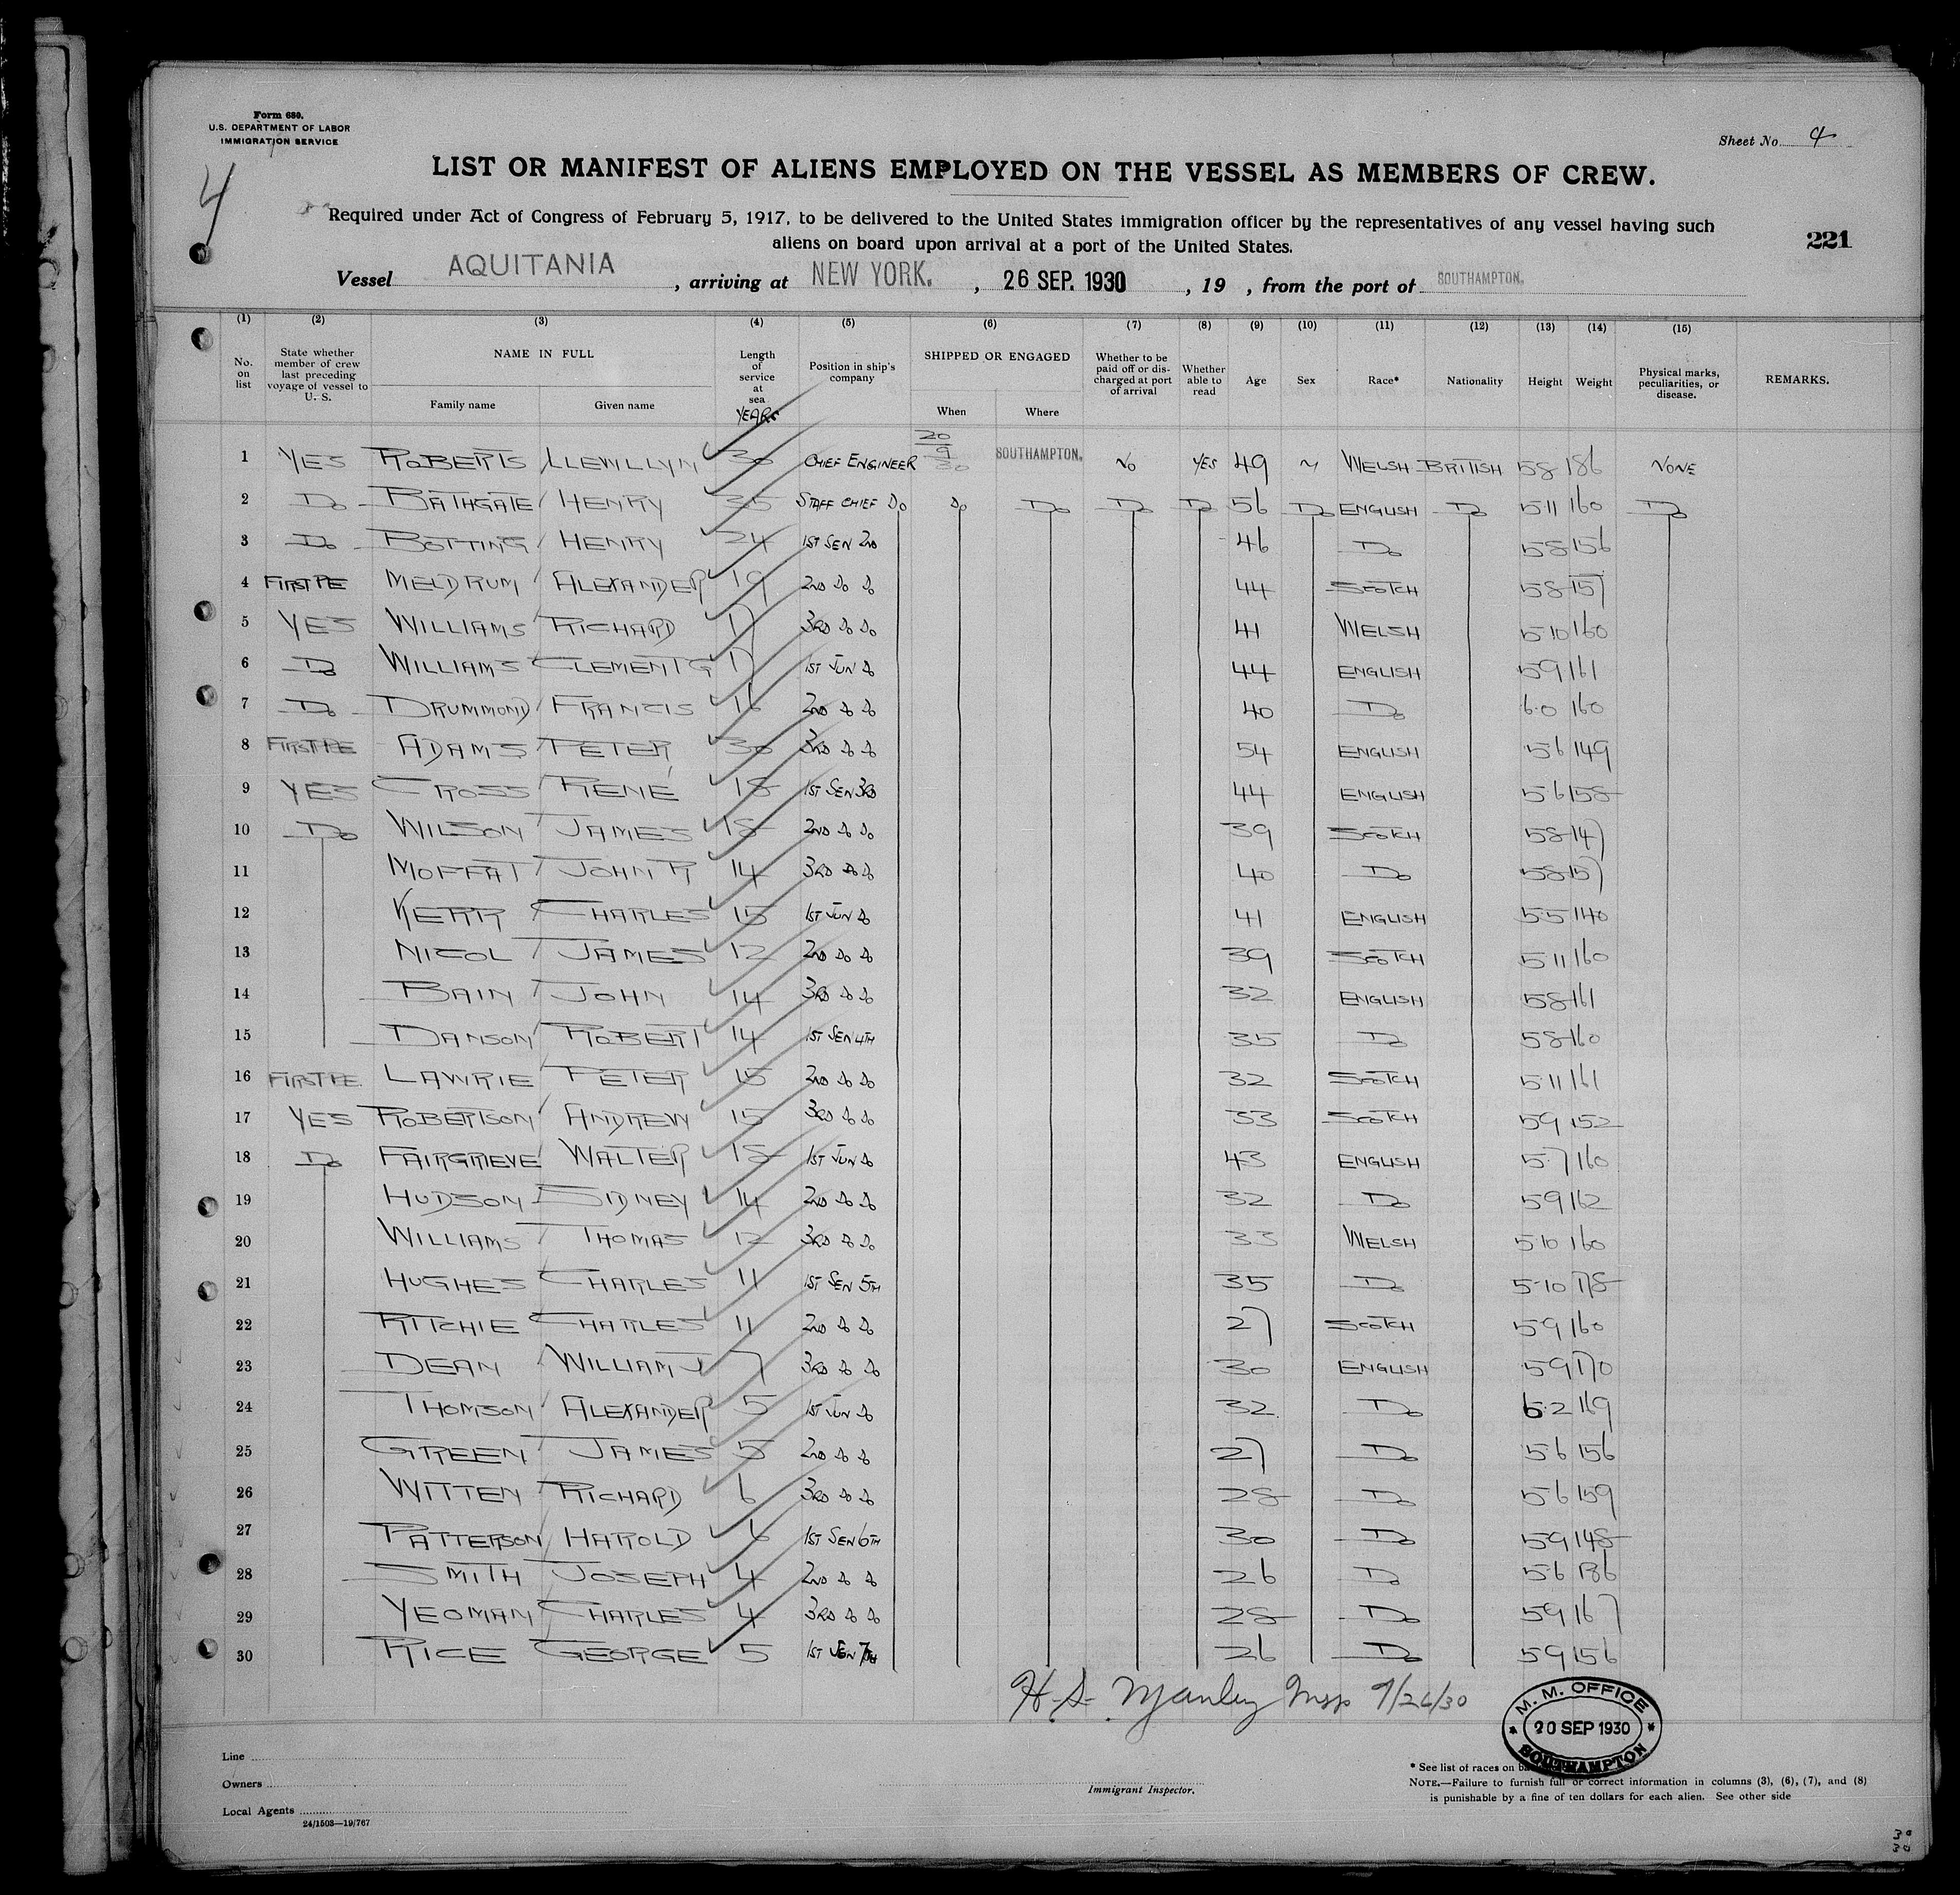 Form 680.
U.S. DEPARTMENT OF LABOR
IMMIGRATION SERVICE
Sheet No. 4
4
LIST OR MANIFEST OF ALIENS EMPLOYED ON THE VESSEL AS MEMBERS OF CREW.
Required under Act of Congress of February 5, 1917, to be delivered to the United States immigration officer by the representatives of any vessel having such
aliens on board upon arrival at a port of the United States.
221
Vessel AQUITANIA, arriving at NEW YORK. , 26 SEP. 1930 , 19 , from the port of SOUTHAMPTON.
(1) (2) (3) (4) (5) (6) (7) (8) (9) (10) (11) (12) (13) (14) (15)
No. on list State whether member of crew last preceding voyage of vessel to U. S. NAME IN FULL Family name Given name Length of service at sea YEARS Position in ship's company SHIPPED OR ENGAGED When Where Whether to be paid off or discharged at port of arrival Whether able to read Age Sex Race* Nationality Height Weight Physical marks, peculiarities, or disease. REMARKS.
1 YES ROBERTS LLEWLLYN 30 CHIEF ENGINEER 20 9 30 SOUTHAMPTON. NO YES 49 M WELSH BRITISH 5 8 186 NONE
2 Do BATHGATE HENRY 35 STAFF CHIEF Do Do Do Do Do 56 Do ENGLISH Do 5 11 160 Do
3 Do BOTTING HENRY 24 1ST SEN 2ND 46 Do 5 8 156
4 FIRST PE MELDRUM ALEXANDER 19 2ND Do Do 44 SCOTCH 5 8 157
5 YES WILLIAMS RICHARD 17 3RD Do Do 41 WELSH 5 10 160
6 Do WILLIAMS CLEMENT G 17 1ST JUN Do 44 ENGLISH 5 9 161
7 Do DRUMMOND FRANCIS 16 2ND Do Do 40 Do 6.0 160
8 FIRST PE ADAMS PETER 30 3RD Do Do 54 ENGLISH 5 6 149
9 YES CROSS RENÉ 18 1ST SEN 3RD 44 ENGLISH 5 6 158
10 Do WILSON JAMES 18 2ND Do Do 39 SCOTCH 5 8 147
11 MOFFAT JOHN R 14 3RD Do Do 40 Do 5 8 157
12 KERR CHARLES 15 1ST JUN Do 41 ENGLISH 5 5 140
13 NICOL JAMES 12 2ND Do Do 39 SCOTCH 5 11 160
14 BAIN JOHN 14 3RD Do Do 32 ENGLISH 5 8 161
15 DANSON ROBERT 14 1ST SEN 4TH 35 Do 5 8 160
16 FIRST PE LAWRIE PETER 15 2ND Do Do 32 SCOTCH 5 11 161
17 YES ROBERTSON ANDREW 15 3RD Do Do 33 SCOTCH 5 9 152
18 Do FAIRGRIEVE WALTER 18 1ST JUN Do 43 ENGLISH 5.7 160
19 HUDSON SIDNEY 14 2ND Do Do 32 Do 5 9 162
20 WILLIAMS THOMAS 12 3RD Do Do 33 WELSH 5 10 160
21 HUGHES CHARLES 11 1ST SEN 5TH 35 Do 5.10 178
22 RITCHIE CHARLES 11 2ND Do Do 27 SCOTCH 5 9 160
23 DEAN WILLIAM J 7 3RD Do Do 30 ENGLISH 5 9 170
24 THOMSON ALEXANDER 5 1ST JUN Do 32 Do 6.2 169
25 GREEN JAMES 5 2ND Do Do 27 Do 5 6 156
26 WITTEN RICHARD 6 3RD Do Do 28 Do 5 6 159
27 PATTERSON HAROLD 6 1ST SEN 6TH 30 Do 5 9 148
28 SMITH JOSEPH 4 2ND Do Do 26 Do 5 6 186
29 YEOMAN CHARLES 4 3RD Do Do 28 Do 5 9 167
30 RICE GEORGE 5 1ST SEN 7TH 26 Do 5 9 156
H. S. Manley Insp 9/26/30
M. M. OFFICE
20 SEP 1930
SOUTHAMPTON
Line
Owners
Local Agents
24/1503—19/767
Immigrant Inspector.
* See list of races on
NOTE.—Failure to furnish full or correct information in columns (3), (6), (7), and (8)
is punishable by a fine of ten dollars for each alien. See other side